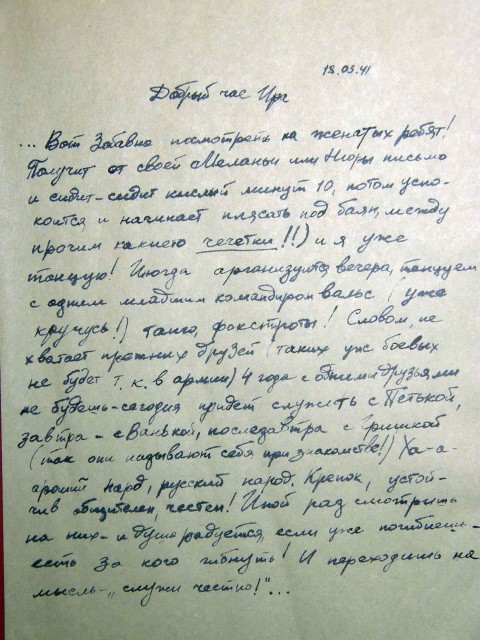 18.03.41
Добрый час Ира
... Вот забавно посмотреть на женатых ребят!
Получит от своей Меланьи или Норы письмо
и сидит-сидит кислый минут 10, потом успо-
коится и начинает плясать под баян, между
прочим какнею чечетки!!) и я уже
танцую! Иногда организуются вечера, танцуем
с одним младшим командиром вальс (уже
кручусь!) танго, фокстроты! Словом, не
хватает прежних друзей (таких уж боевых
не будет т.к. в армии) 4 года с одними друзьями
не будешь-сегодня придет служить с Петькой,
завтра - с Ванькой, послезавтра с Гришкой
(так они называют себя при знакомстве!) Ха-а-
ároший народ, русский народ. Крепок, устой-
чив общителен, честен! Иной рад смотришь
на них - и душа радуется, если уже погибнешь -
есть за кого гибнуть! И переходишь на
мысль - „служи честно!"...